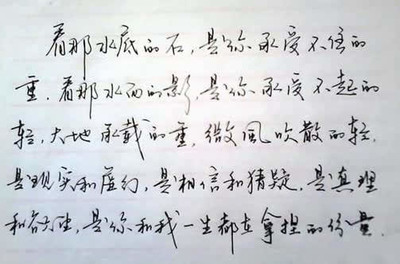 看那水底的石,是你承受不住的
重.看那水面的影,是你承受不起的
轻,大地承载的重,微风吹散的轻.
是现实和虚幻,是相信和猜疑.是真理
和谷,是你和我一生都在拿捏的份量.